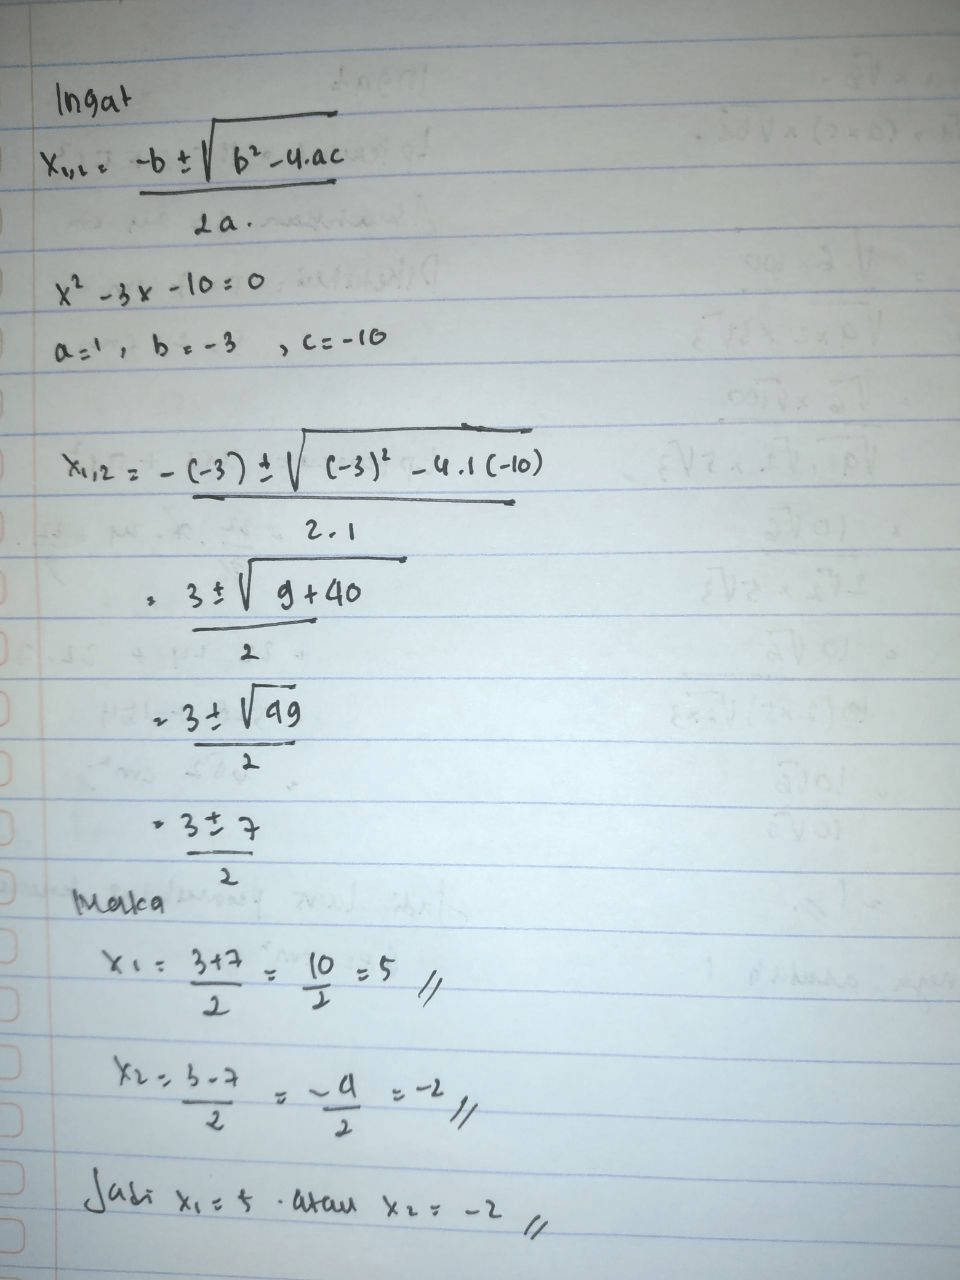 Ingat
x₁,₂ = -b ± √b² - 4.ac
2a.
x² - 3x - 10 = 0
a = 1, b = -3, c = -10
x₁,₂ = -(-3) ± √(-3)² - 4.1(-10)
2.1
= 3 ± √9 + 40
2
= 3 ± √49
2
= 3 ± 7
2
Maka
x₁ = 3+7 = 10 = 5 //
2 2
x₂ = 3-7 = -4 = -2 //
2 2
Jadi x₁ = 5 . atau x₂ = -2 //